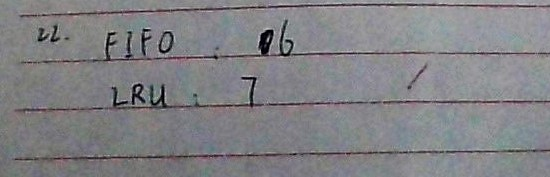 22. FIFO : 6
LRU : 7